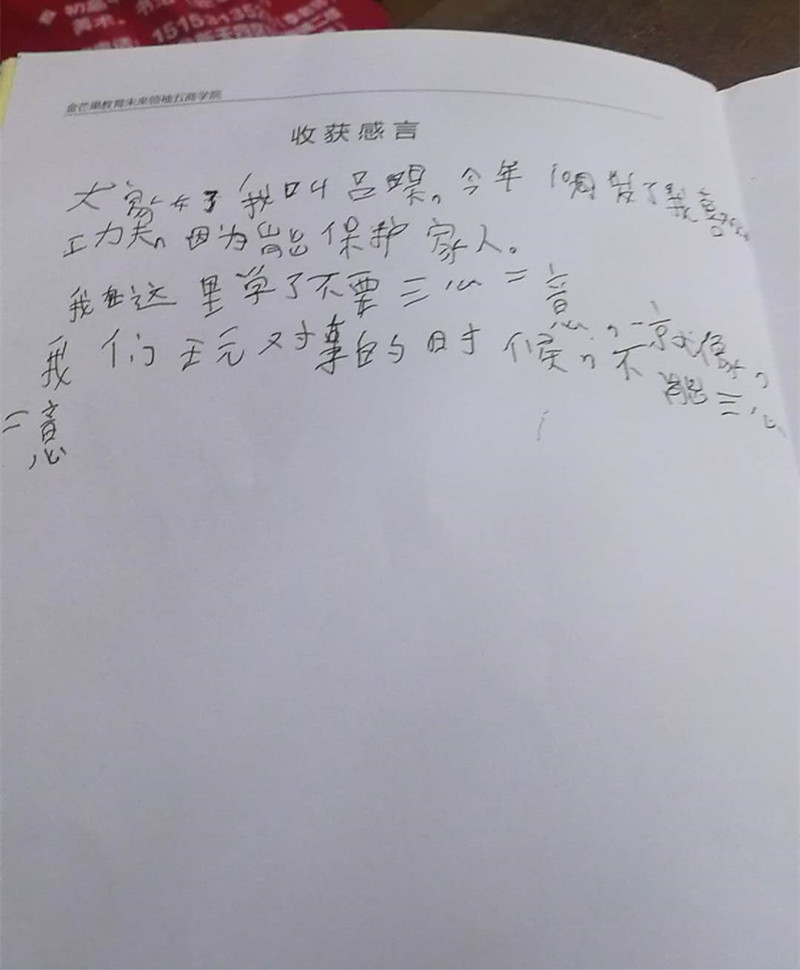 美术、书法
1515
金芒果教育未来领袖五商学院
收获感言
大家好我叫吕，今年10周岁了我喜
工力夫，因为能保护家人。
我在这里学了不要三心二意
我们玩对的时候，不
能三心
二意